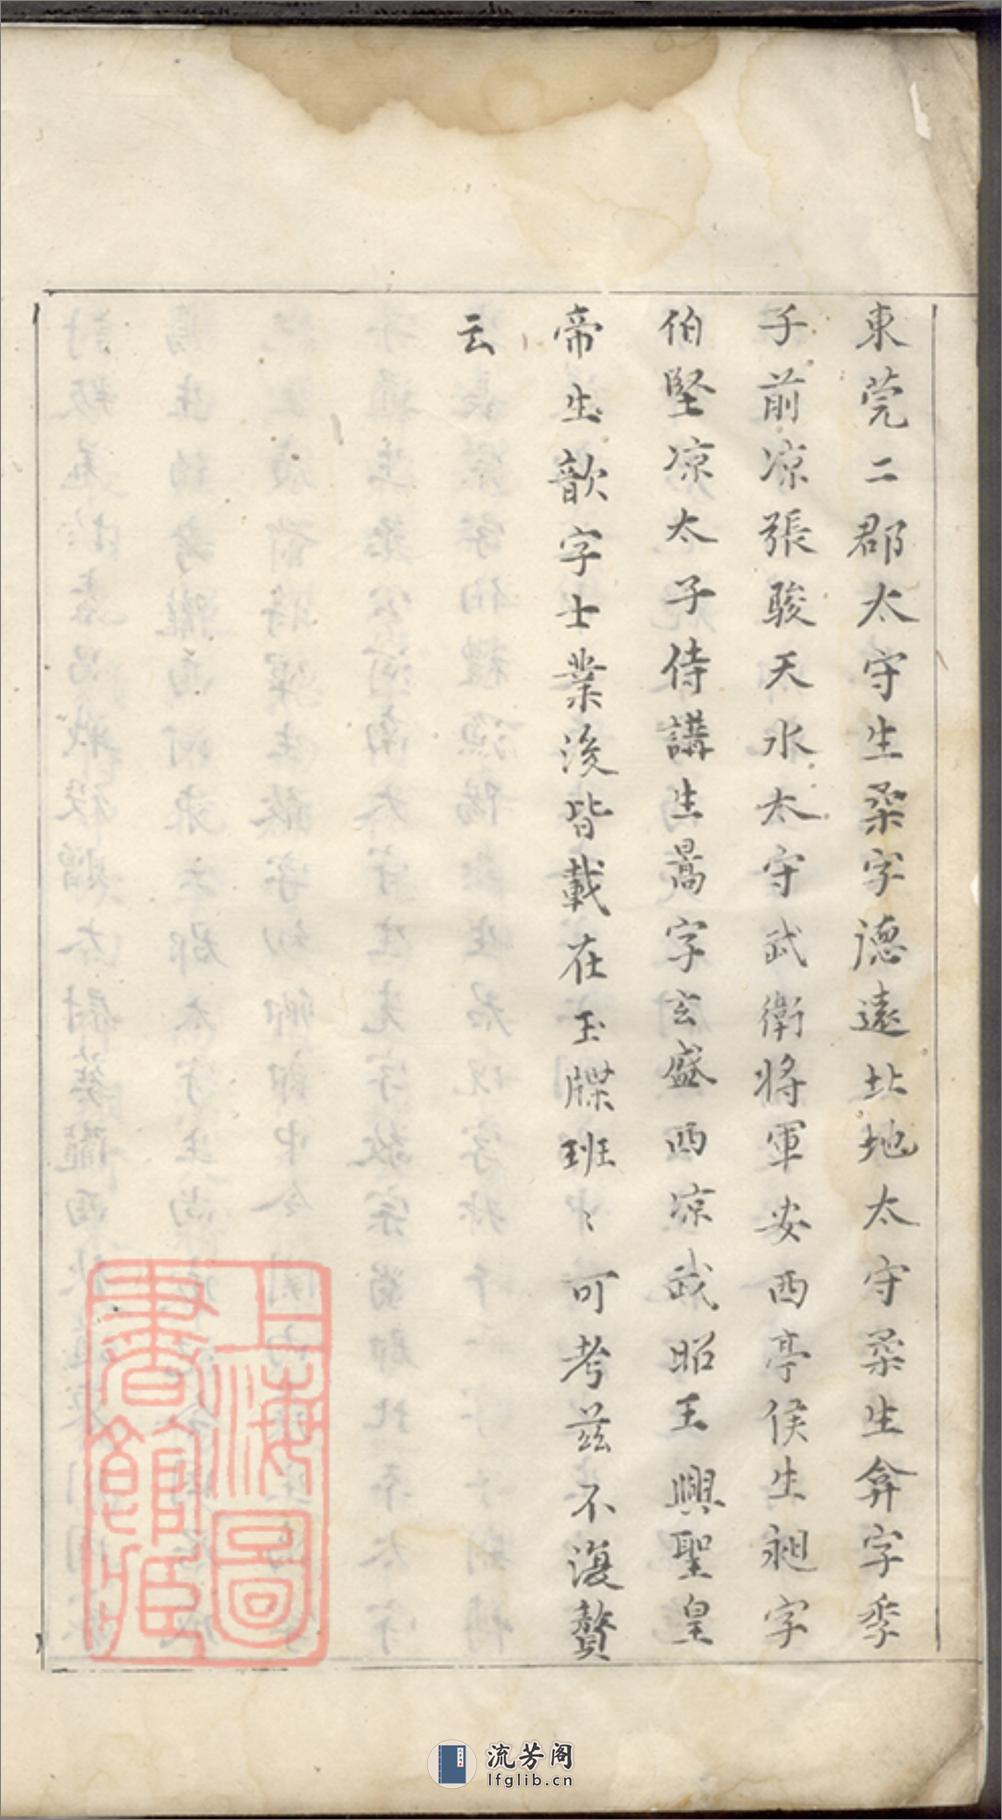 東莞二郡太守生柔字德遠北地太守柔生弇字季
子前凉張駿天水太守武衛將軍安西亭侯生昶字
伯堅凉太子侍講生暠字玄盛西凉武昭王興聖皇
帝生歆字士業後皆載在玉牒班〻可考茲不復贅
云
上海圖
書館藏
流芳阁
lfglib.cn